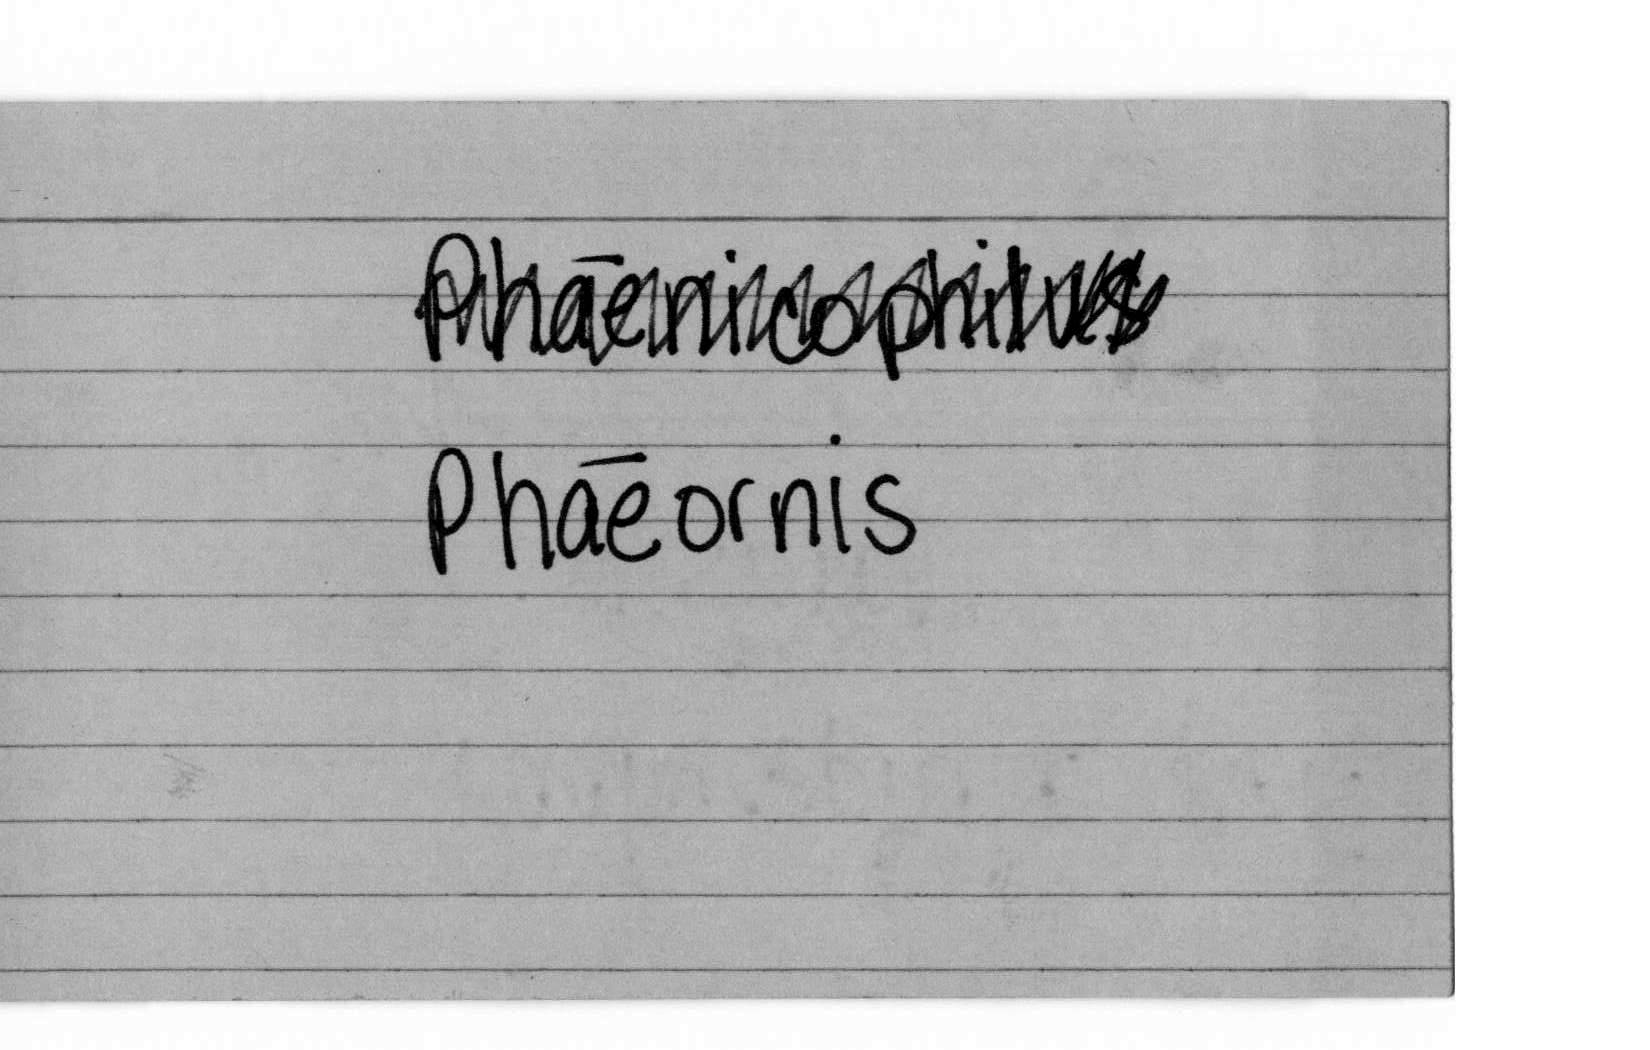 Phāenicophilus
Phāeornis